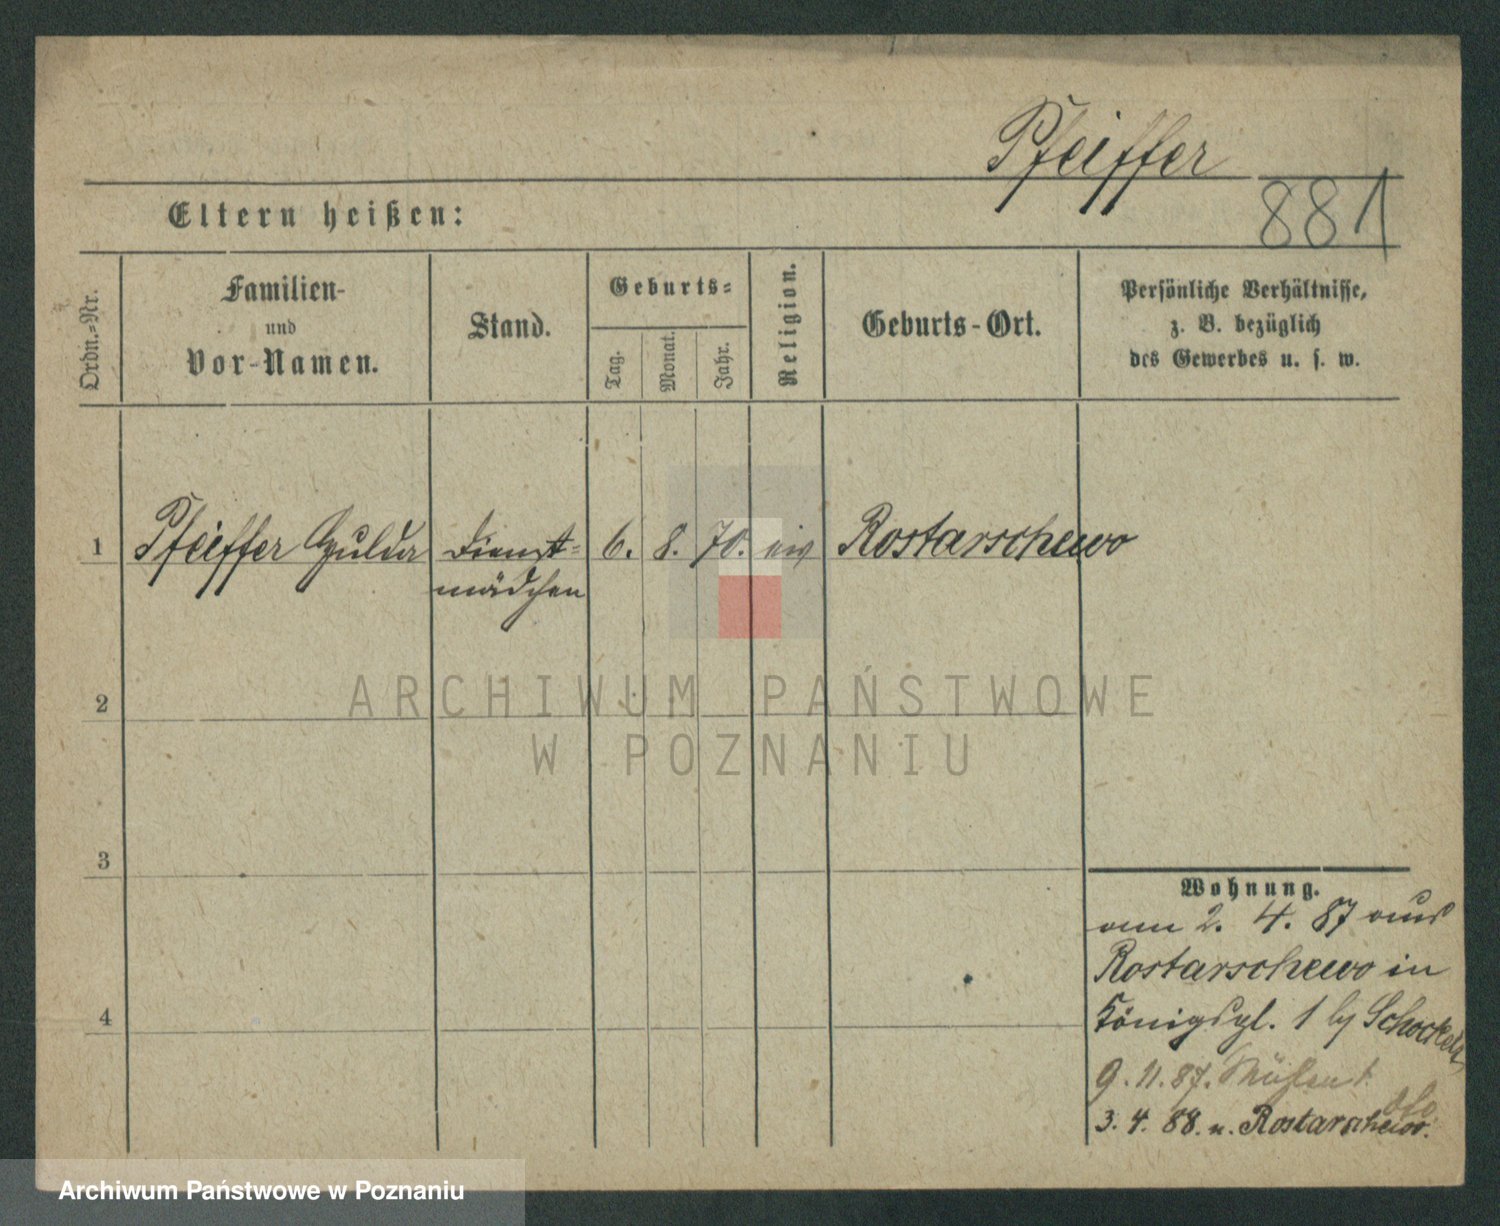 Pfeiffer
881
Eltern heißen:
Ordn.=Nr.
Familien-
und
Vor-Namen.
Stand.
Geburts=
Tag.
Monat.
Jahr.
Religion.
Geburts-Ort.
Persönliche Verhältnisse,
z. B. bezüglich
des Gewerbes u. s. w.
1 Pfeiffer Hulda Dienst= 6. 8. 70. ev Rostarschewo
mädchen
2
3
4
Wohnung.
am 2. 4. 87 aus
Rostarschewo in
Königspl. 1 by
9. 11. 87. Mühlenst.
dto.
3. 4. 88. n. Rostarschewo.
ARCHIWUM PAŃSTWOWE
W POZNANIU
Archiwum Państwowe w Poznaniu